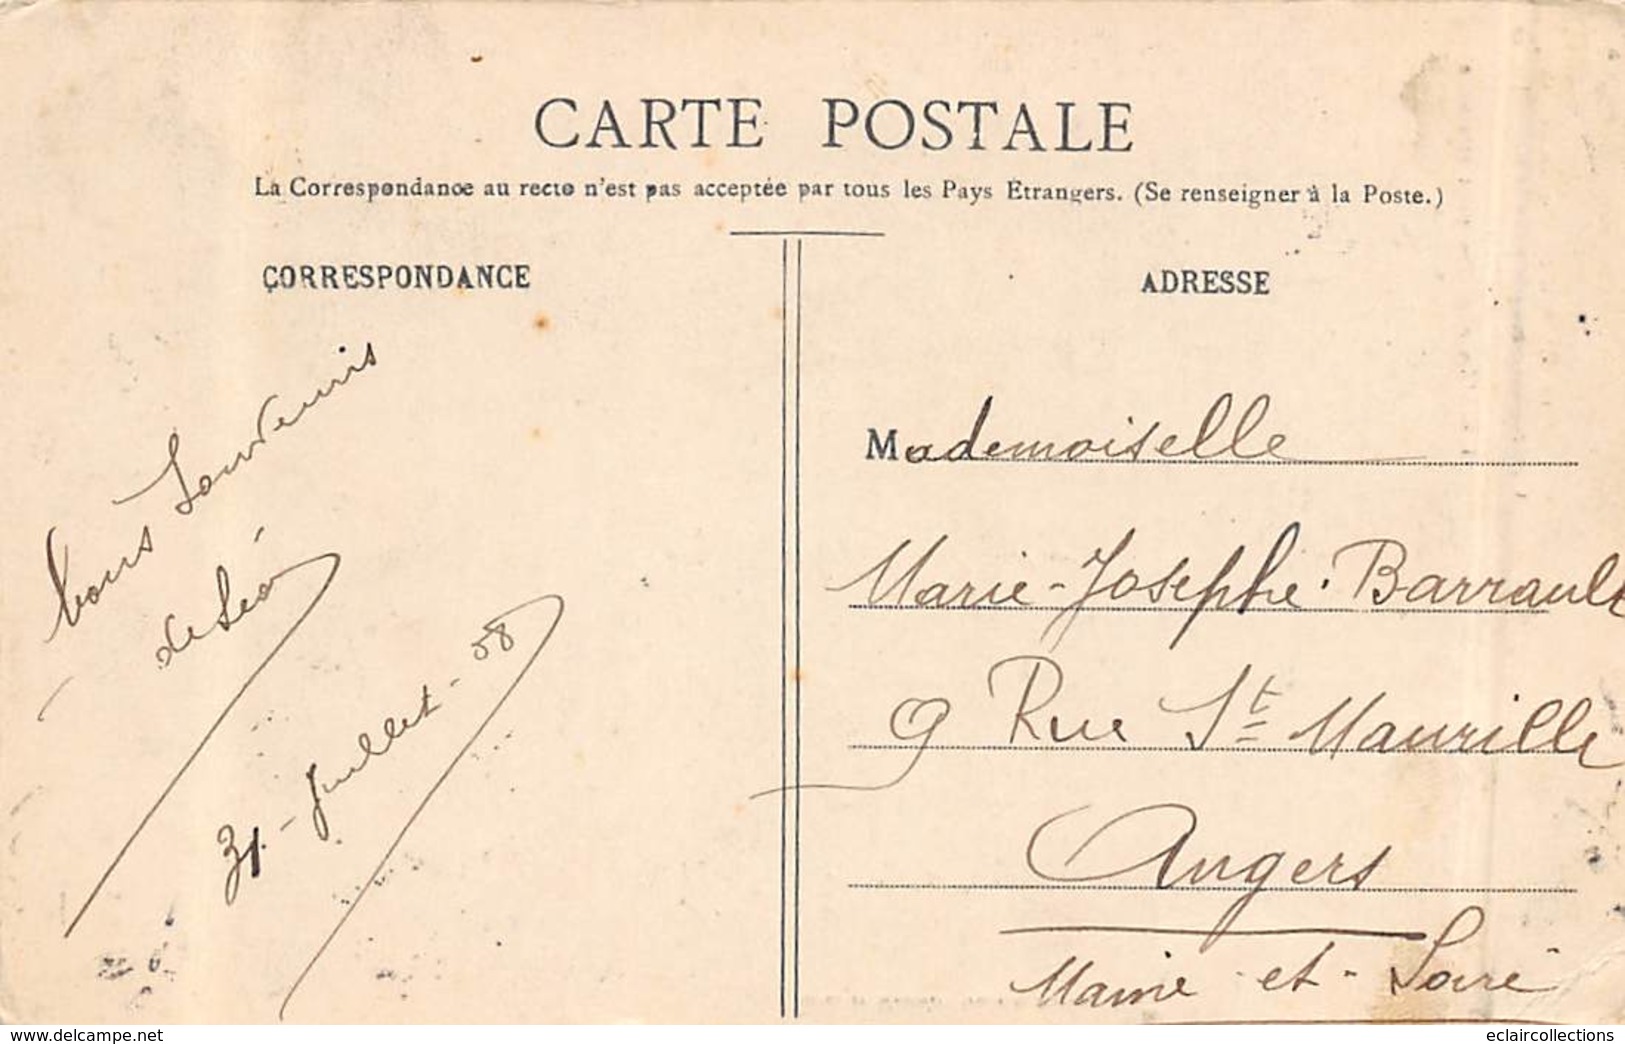 CARTE POSTALE
La Correspondance au recto n'est pas acceptée par tous les Pays Étrangers. (Se renseigner à la Poste.)
CORRESPONDANCE
bons Souvenirs
de Léon
31 - Juillet - 08
ADRESSE
Mademoiselle
Marie-Josephe. Barrault
9 Rue St Maurille
Angers
Maine - et - Loire
www.delcampe.net
eclaircollections